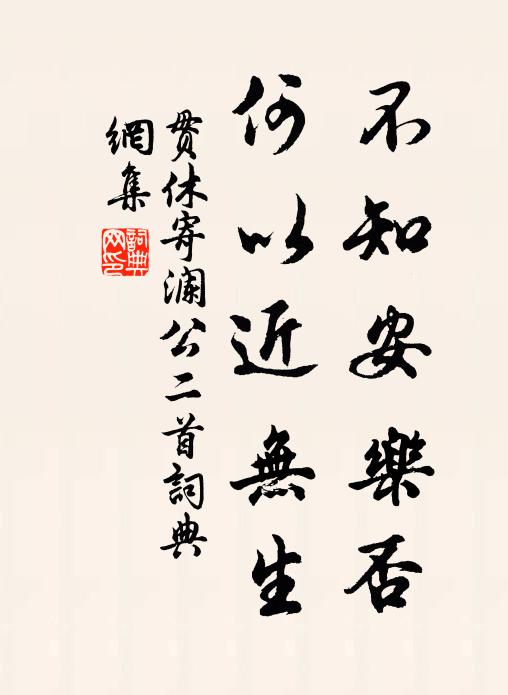 不知安樂否
何以近無生
貫休寄瀾公二首詞典
網集
詞典
网印